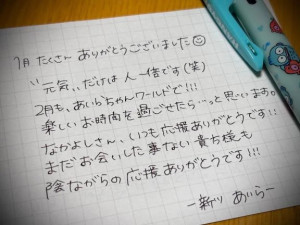 1月 たくさん ありがとうございました☺
"元気"だけは人一倍です(笑)
2月も、あいらちゃんワールドで!!!
楽しいお時間を過ごせたら…っと思います。
なかよしさん、いつも応援ありがとうです!!
まだお会いした事ない貴方様も
陰ながらの応援ありがとうです!!!
ー新川 あいらー